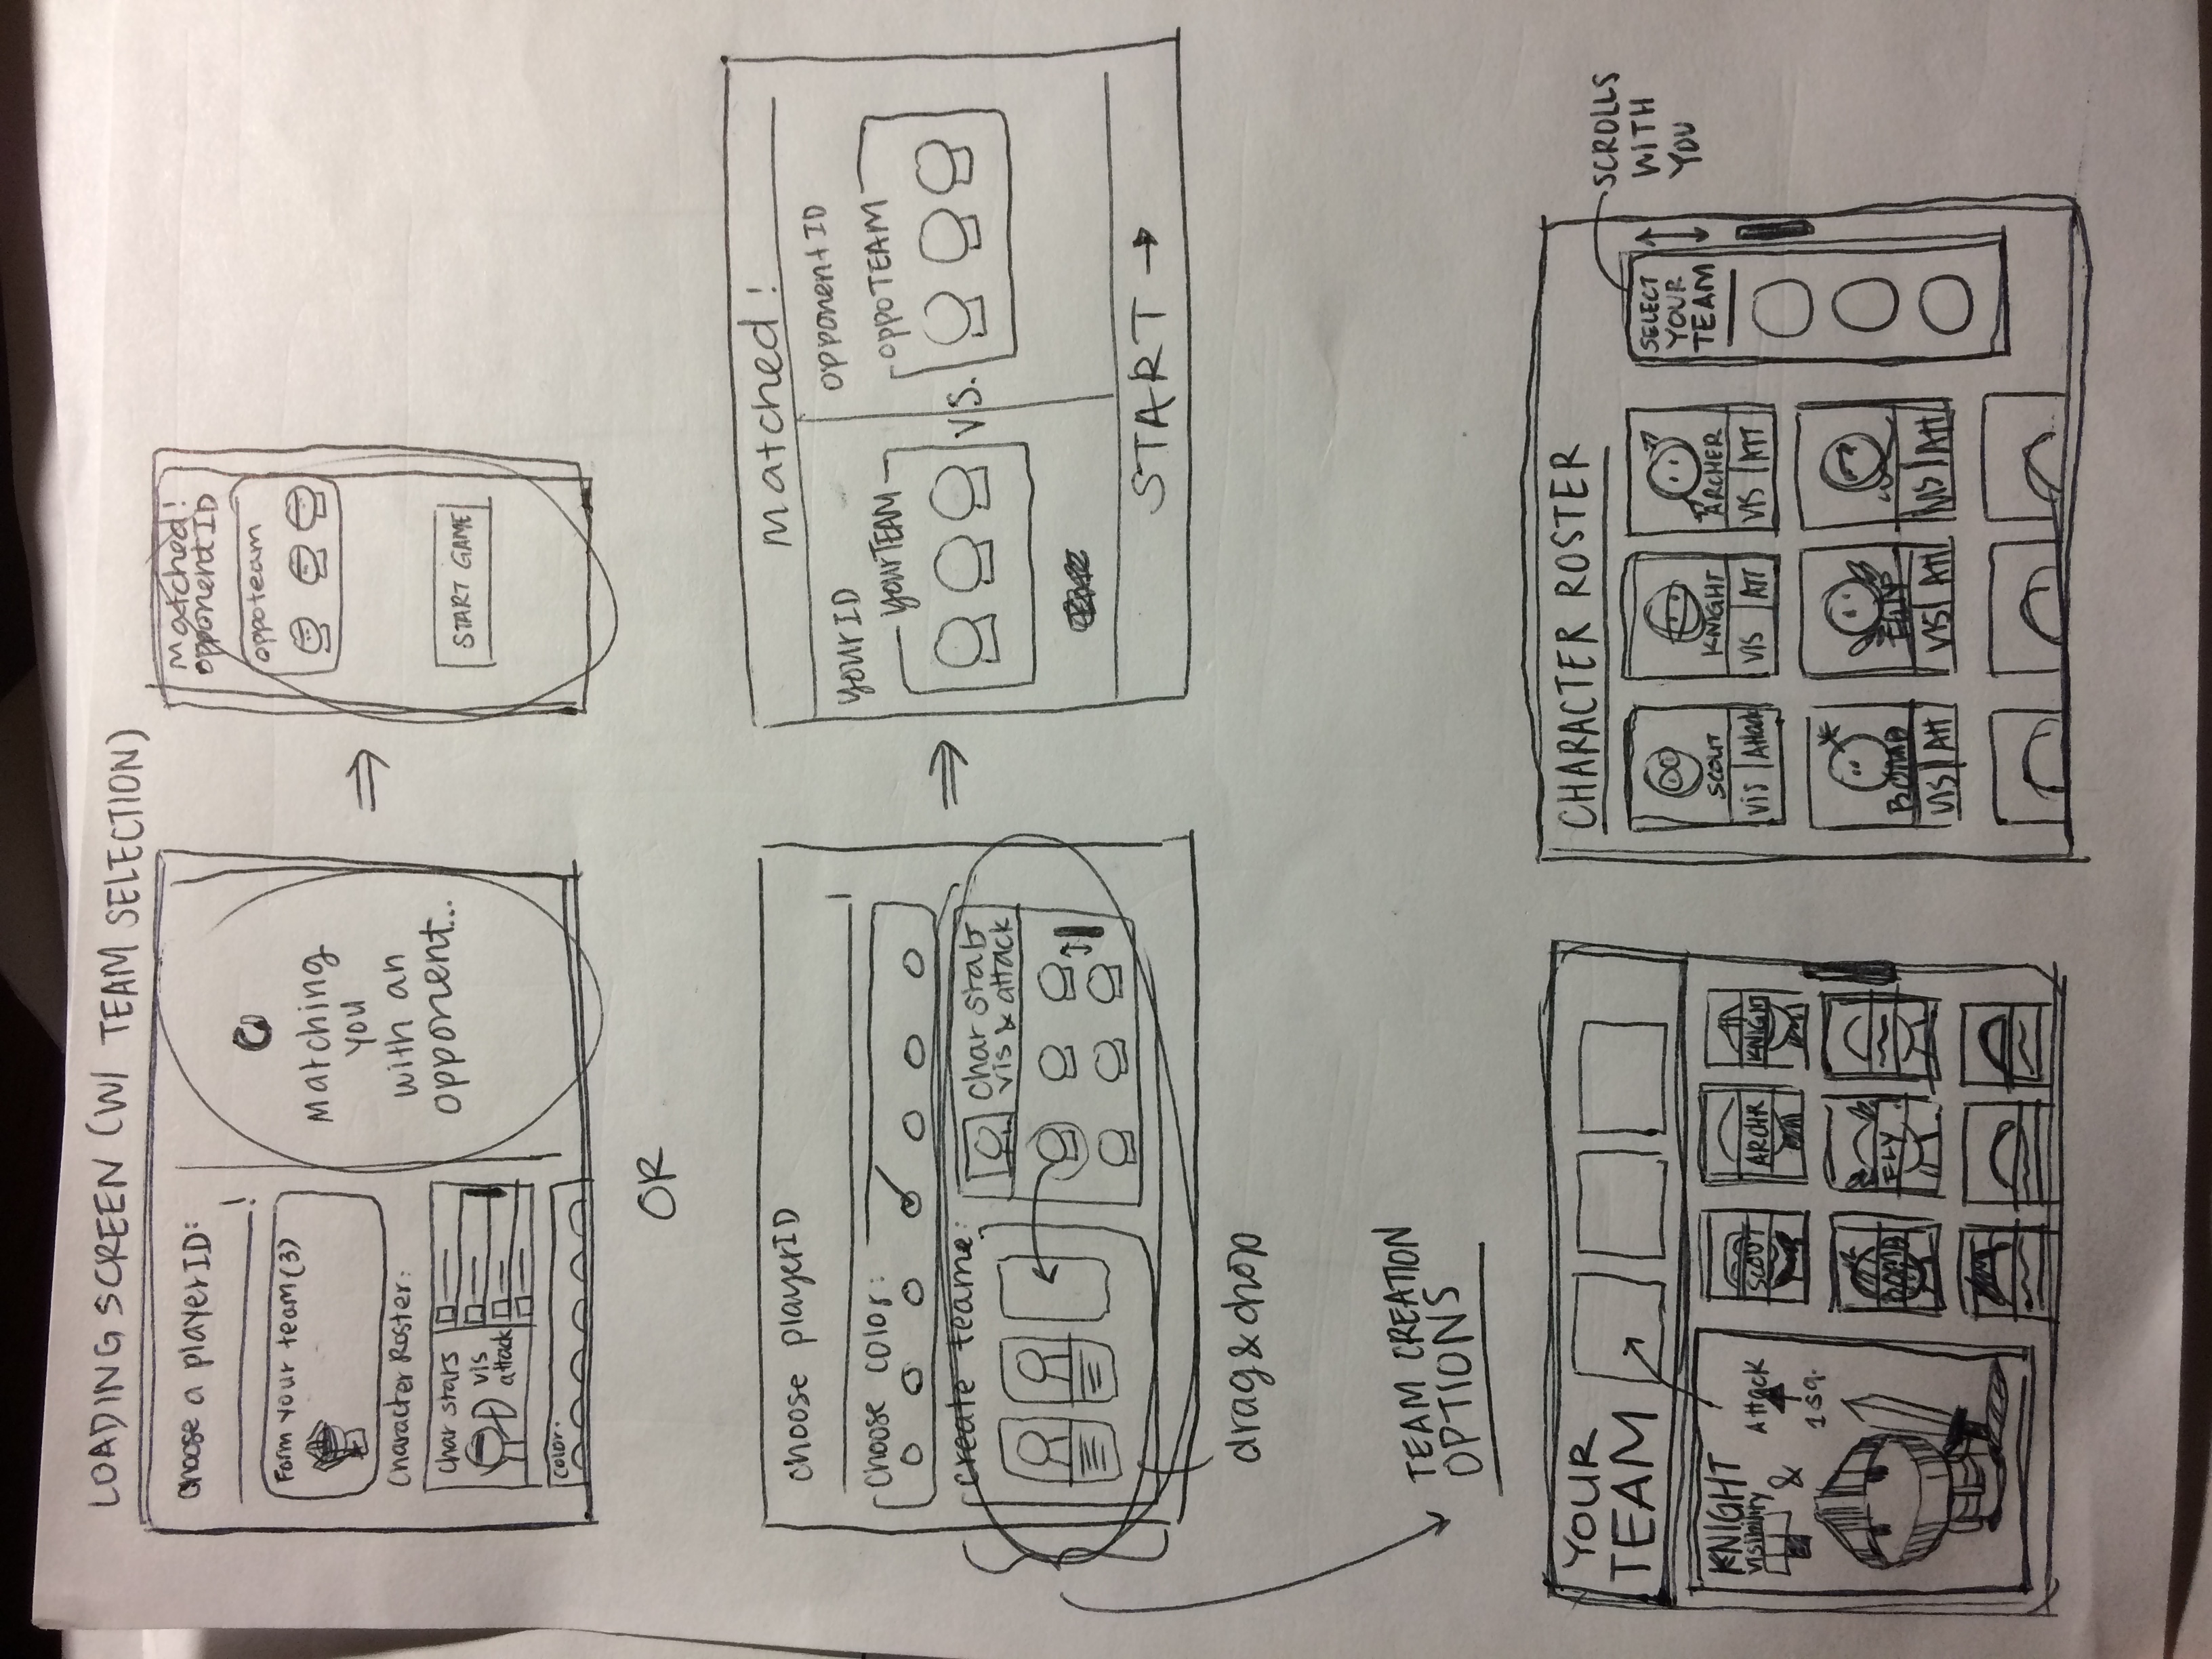 LOADING SCREEN (W/ TEAM SELECTION)
choose a playerID:
Form your team (3)
Character Roster:
char stars
vis
attack
color:
Matching
you
with an
opponent...
Matched!
opponentID
oppoteam
START GAME
OR
choose playerID
choose color:
create team:
char stats
vis & attack
drag & drop
Matched!
yourID
yourTEAM
VS.
opponentID
oppoTEAM
START →
TEAM CREATION
OPTIONS
YOUR
TEAM
KNIGHT
visibility
&
Attack
1 sq.
SCOUT
ARCHR
KNIGHT
BOMB
FLY
CHARACTER ROSTER
SCOUT
Vis Attack
KNIGHT
VIS ATT
ARCHER
VIS ATT
BOMB
VIS Att
VIS Att
VIS Att
SELECT
YOUR
TEAM
SCROLLS
WITH
YOU